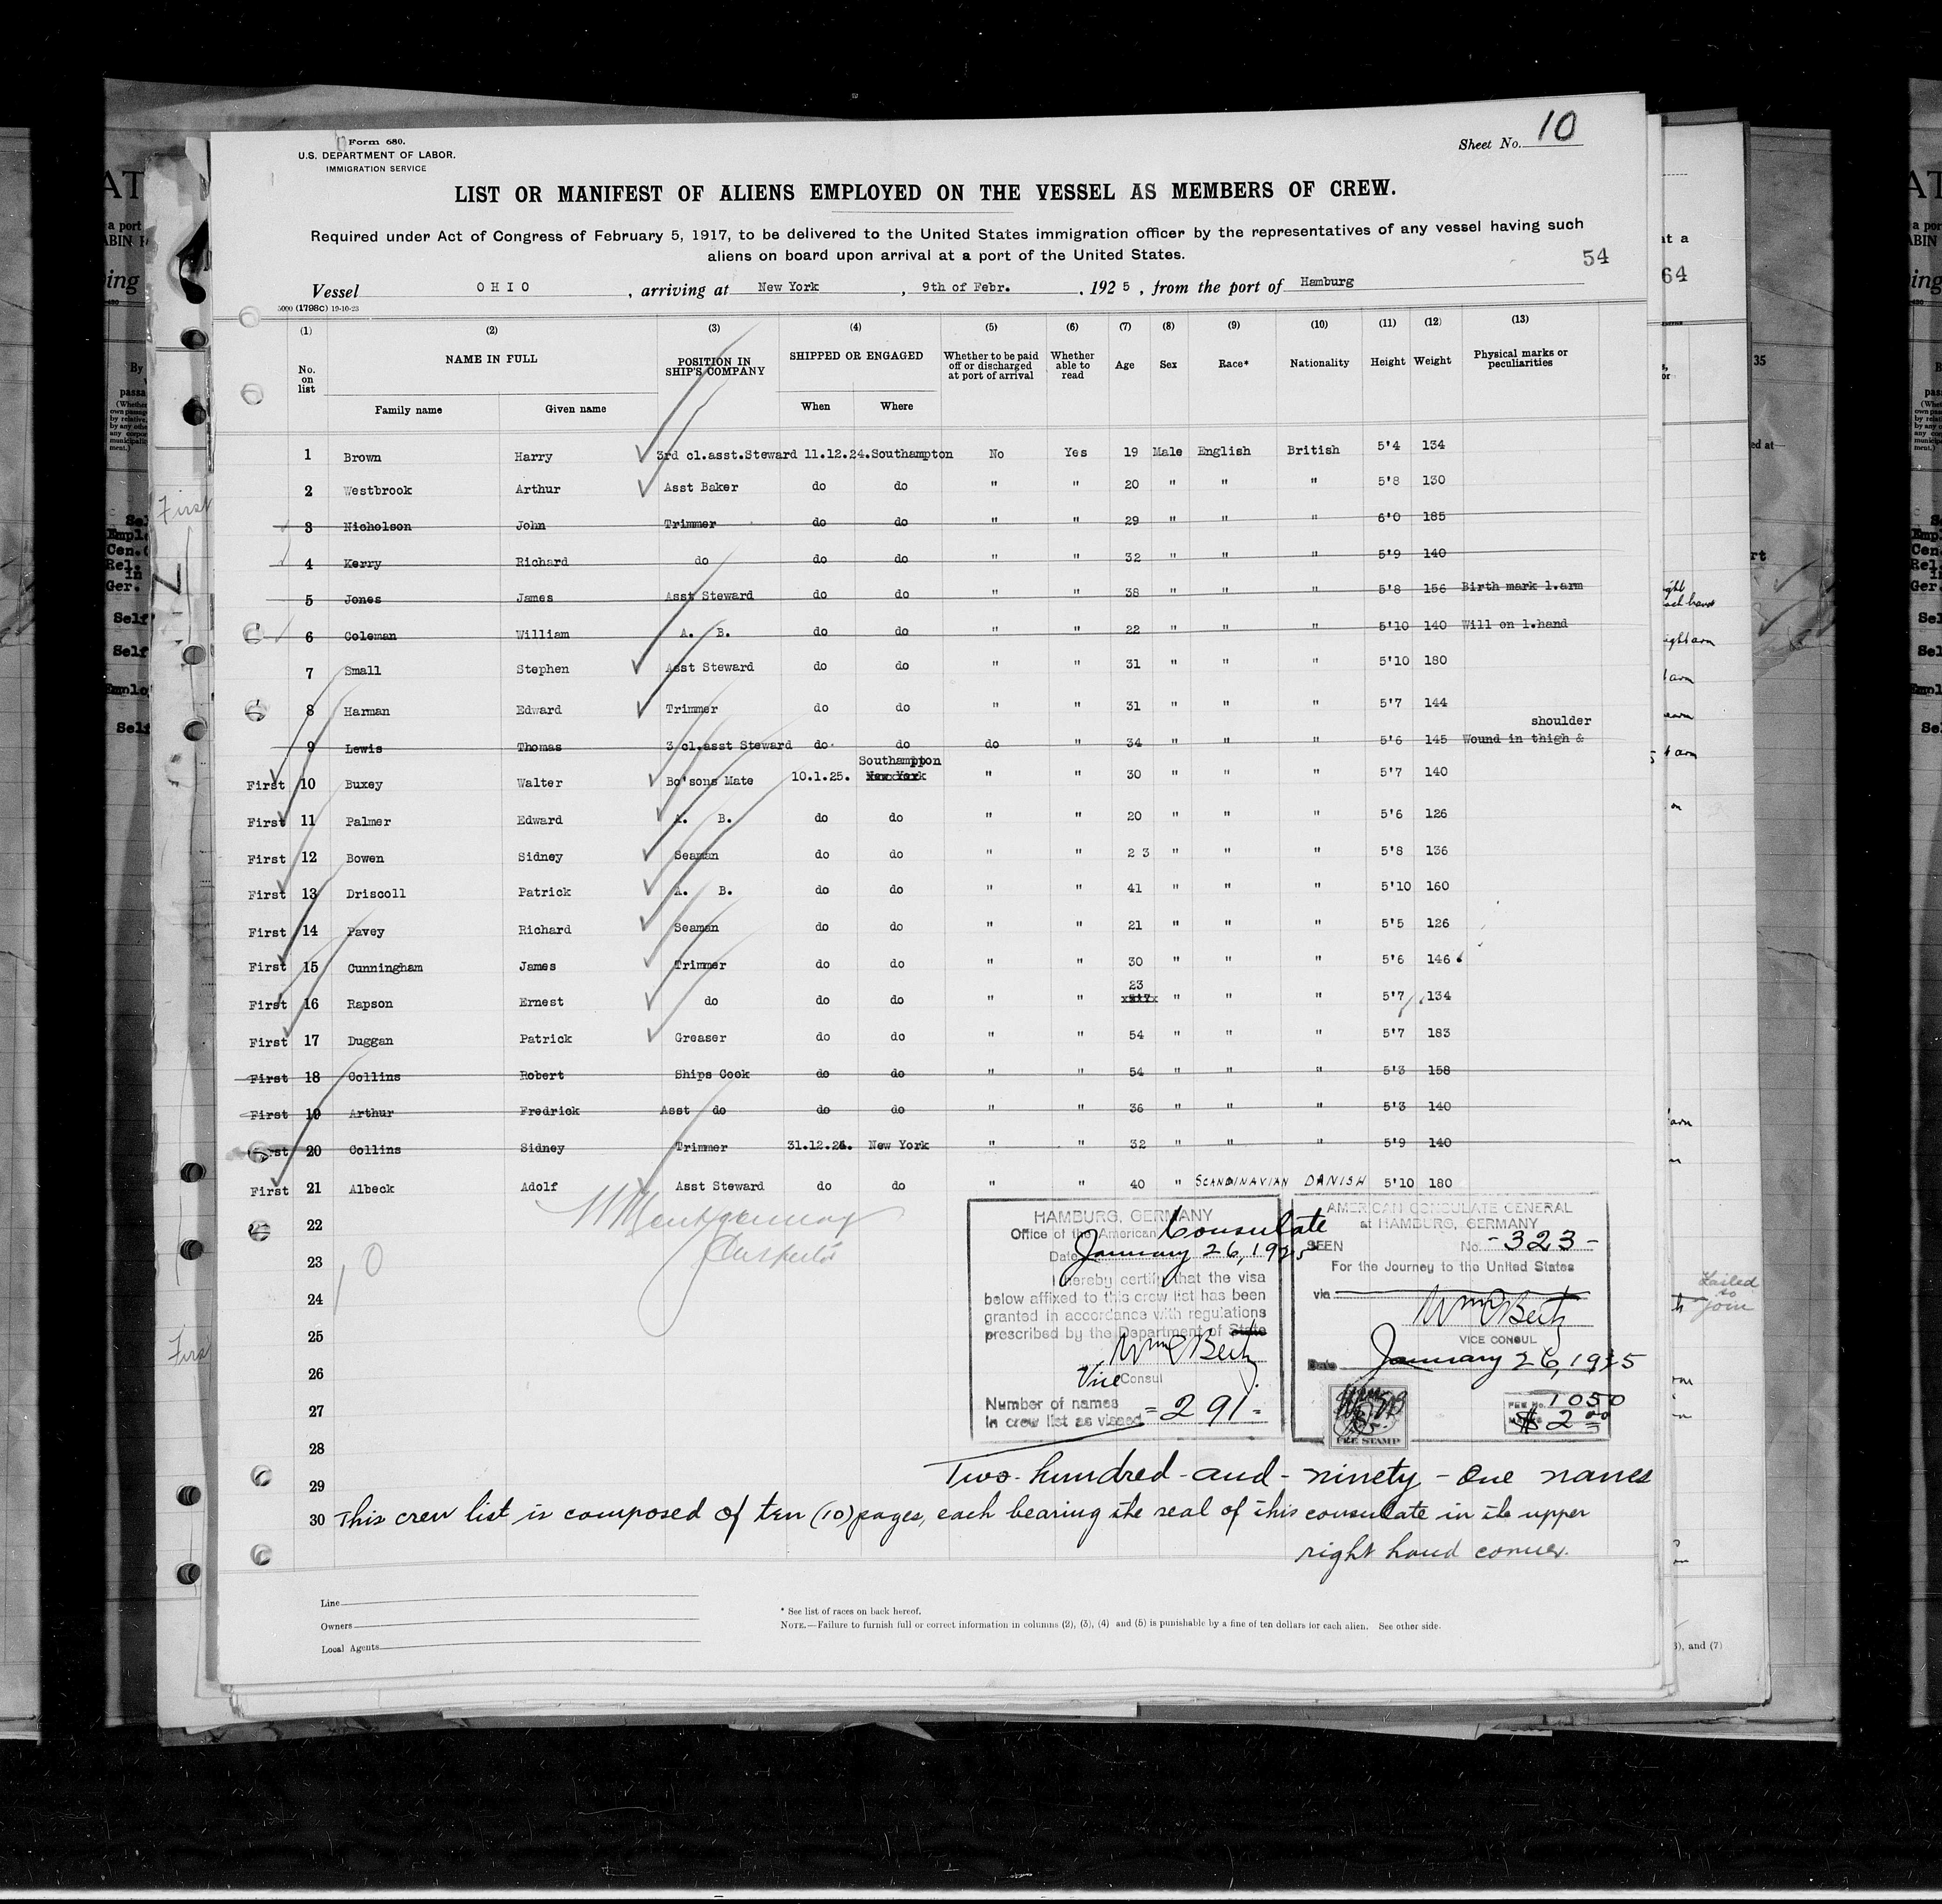 Form 680.
U.S. DEPARTMENT OF LABOR.
IMMIGRATION SERVICE
Sheet No. 10
LIST OR MANIFEST OF ALIENS EMPLOYED ON THE VESSEL AS MEMBERS OF CREW.
Required under Act of Congress of February 5, 1917, to be delivered to the United States immigration officer by the representatives of any vessel having such
aliens on board upon arrival at a port of the United States.
54
Vessel OHIO, arriving at New York, 9th of Febr., 1925, from the port of Hamburg
5000 (1798c) 19-10-23
(1) (2) (3) (4) (5) (6) (7) (8) (9) (10) (11) (12) (13)
No. on list NAME IN FULL POSITION IN SHIP'S COMPANY SHIPPED OR ENGAGED Whether to be paid off or discharged at port of arrival Whether able to read Age Sex Race* Nationality Height Weight Physical marks or peculiarities
Family name Given name When Where
1 Brown Harry 3rd cl.asst.Steward 11.12.24. Southampton No Yes 19 Male English British 5'4 134
2 Westbrook Arthur Asst Baker do do " " 20 " " " 5'8 130
3 Nicholson John Trimmer do do " " 29 " " " 6'0 185
4 Kerry Richard do do do " " 32 " " " 5'9 140
5 Jones James Asst Steward do do " " 38 " " " 5'8 156 Birth mark l.arm
6 Coleman William A. B. do do " " 22 " " " 5'10 140 Will on l.hand
7 Small Stephen Asst Steward do do " " 31 " " " 5'10 180
8 Harman Edward Trimmer do do " " 31 " " " 5'7 144
shoulder
9 Lewis Thomas 3 cl.asst Steward do do do " 34 " " " 5'6 145 Wound in thigh &
Southampton
First 10 Buxey Walter Bo'sons Mate 10.1.25. New York " " 30 " " " 5'7 140
First 11 Palmer Edward A. B. do do " " 20 " " " 5'6 126
First 12 Bowen Sidney Seaman do do " " 23 " " " 5'8 136
First 13 Driscoll Patrick A. B. do do " " 41 " " " 5'10 160
First 14 Pavey Richard Seaman do do " " 21 " " " 5'5 126
First 15 Cunningham James Trimmer do do " " 30 " " " 5'6 146
23
First 16 Rapson Ernest do do do " " " " " 5'7 134
First 17 Duggan Patrick Greaser do do " " 54 " " " 5'7 183
First 18 Collins Robert Ships Cook do do " " 54 " " " 5'3 158
First 19 Arthur Fredrick Asst do do do " " 36 " " " 5'3 140
20 Collins Sidney Trimmer 31.12.24. New York " " 32 " " " 5'9 140
First 21 Albeck Adolf Asst Steward do do " " 40 " SCANDINAVIAN DANISH 5'10 180
22
23
24
25
26
27
28
29
HAMBURG, GERMANY
Office of the American Consulate
Date January 26, 1925
I hereby certify that the visa
below affixed to this crew list has been
granted in accordance with regulations
prescribed by the Department of State
Vice Consul
Number of names
in crew list as visaed = 291 =
AMERICAN CONSULATE GENERAL
at HAMBURG, GERMANY
SEEN No. -323-
For the Journey to the United States
via
VICE CONSUL
Date January 26, 1925
FEE STAMP
FEE No. 1050
$ 2.00
Two-hundred-and-ninety-one names
30 This crew list is composed of ten (10) pages, each bearing the seal of this consulate in its upper
right hand corner.
Line
Owners
Local Agents
* See list of races on back hereof.
NOTE.—Failure to furnish full or correct information in columns (2), (3), (4) and (5) is punishable by a fine of ten dollars for each alien. See other side.
64
Failed
to
join
), and (7)